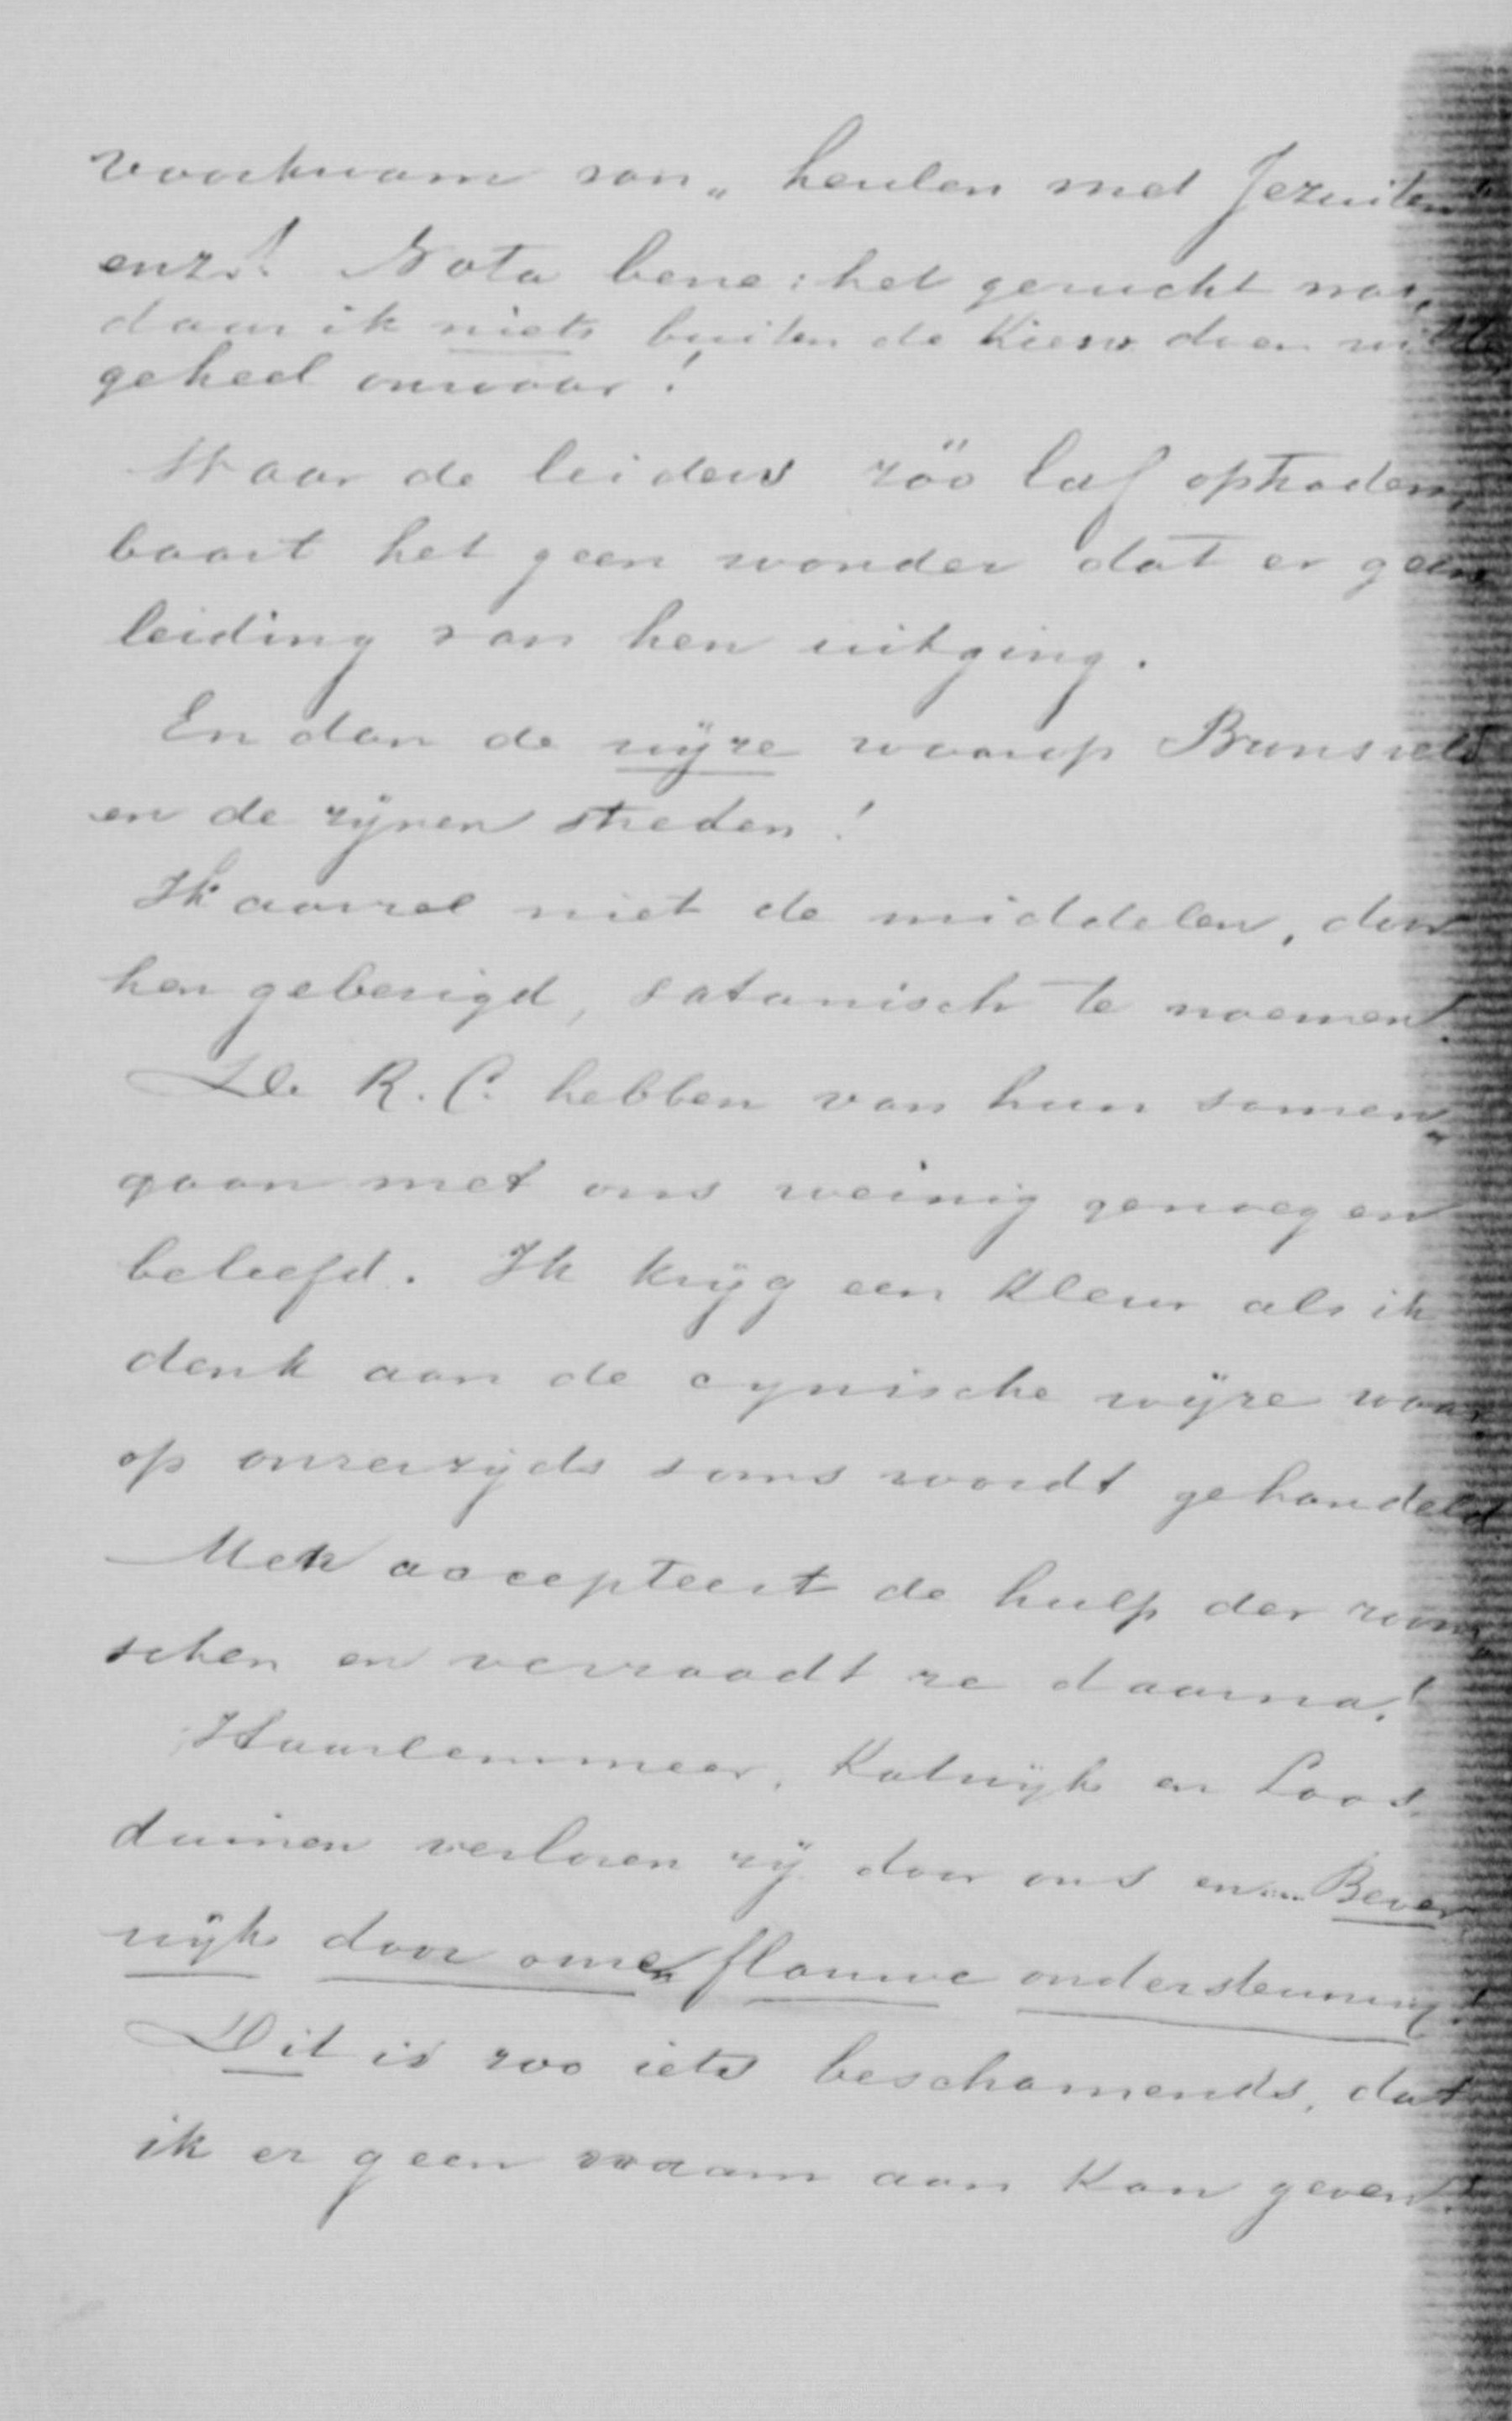 voorkwam van „heulen met Jezuiten"
enz.! Nota bene: het gerucht was,
daar ik niets buiten de Kiesv. doen wilde
geheel onwaar!
Waar de leiders zóó laf optraden,
baart het geen wonder dat er geen
leiding van hen uitging.
En dan de wijze waarop Brunsveld
en de zijnen streden!
Ik aarzel niet de middelen, door
hen gebezigd, satanisch te noemen.
De R. C. hebben van hun samen„
gaan met ons weinig genoegen
beleefd. Ik krijg een kleur als ik
denk aan de cynische wijze waar
op onzerzijds soms wordt gehandeld
Men accepteert de hulp der room„
schen en verraadt ze daarna!
Haarlemmermeer, Katwijk en Loos
duinen verloren zij door ons en ... Bever
wijk door onze flauwe ondersteuning!
Dit is zoo iets beschamends, dat
ik er geen naam aan kan geven!